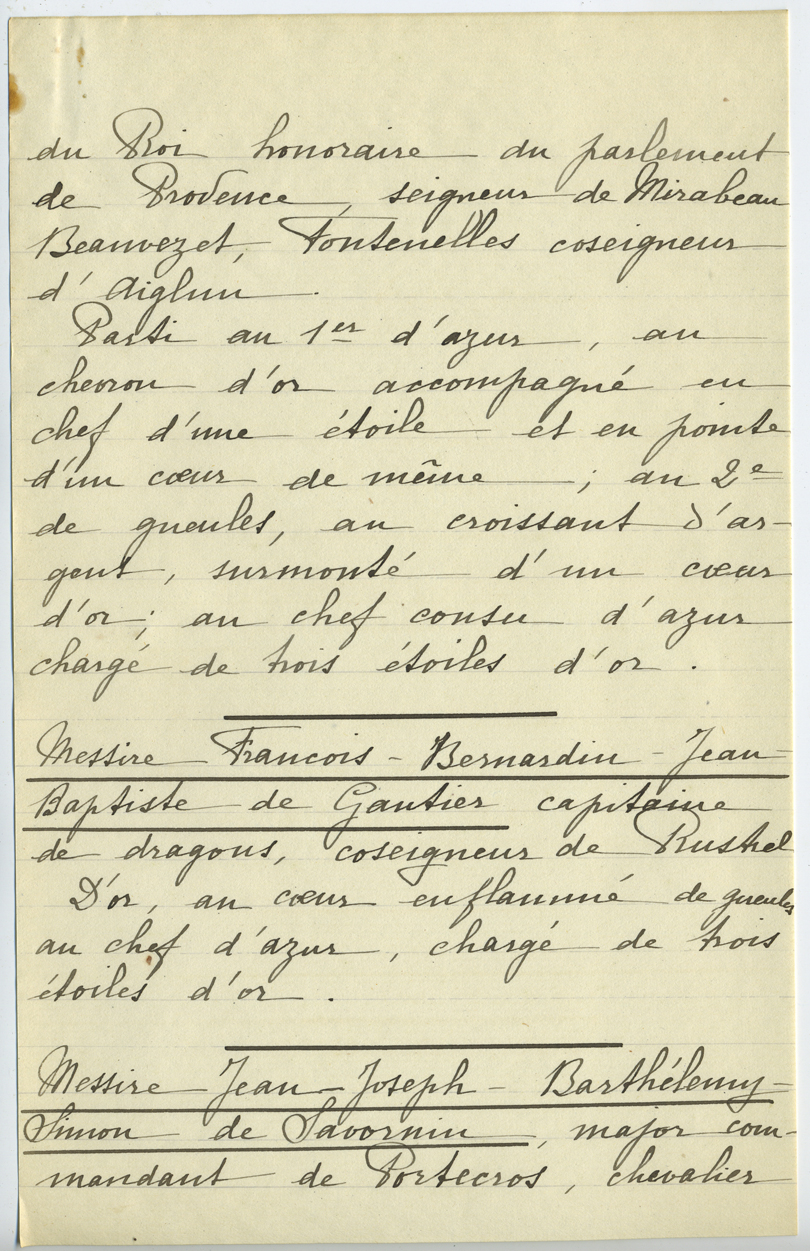 du Roi honoraire du parlement
de Provence, seigneur de Mirabeau
Beauvezet, Fontenelles coseigneur
d'Aiglun.
Parti au 1er d'azur, au
chevron d'or accompagné en
chef d'une étoile et en pointe
d'un cœur de même ; au 2e
de gueules, au croissant d'ar-
gent, surmonté d'un cœur
d'or ; au chef cousu d'azur
chargé de trois étoiles d'or.
Messire Francois-Bernardin-Jean-
Baptiste de Gautier capitaine
de dragons, coseigneur de Rustrel
D'or, au cœur enflammé de gueules
au chef d'azur, chargé de trois
étoiles d'or.
Messire Jean-Joseph-Barthélemy-
Simon de Savornin, major com-
mandant de Portecros, chevalier